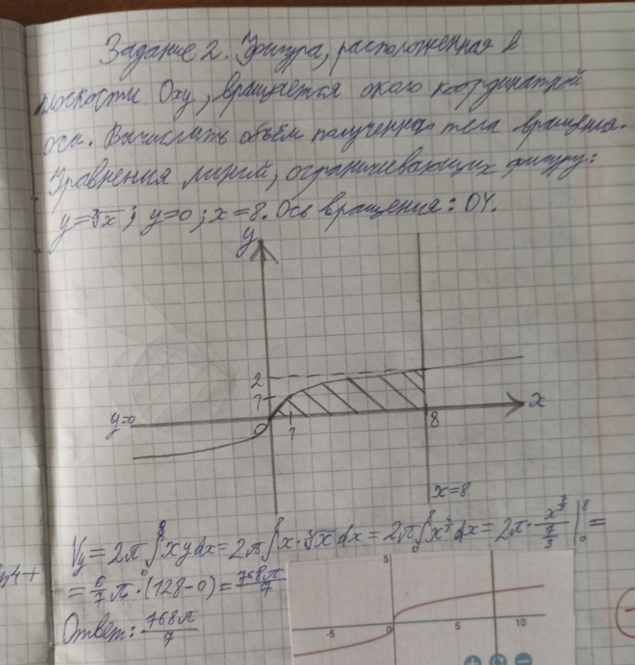 Задание 2. Фигура, расположенная в
плоскости Oxy, вращается около координатной
оси. Вычислить объём полученного тела вращения.
Уравнения линий, ограничивающих фигуру:
y=∛x; y=0; x=8. Ось вращения: OY.
y
2
1
y=0
0
1
8
x
x=8
V_y = 2π∫₀⁸ xy dx = 2π∫₀⁸ x·∛x dx = 2π∫₀⁸ x^{4/3} dx = 2π· x^{7/3} / (7/3) |₀⁸ =
= 6/7 π·(128-0) = 768π/7
Ответ: 768π/7
5
-5
0
5
10